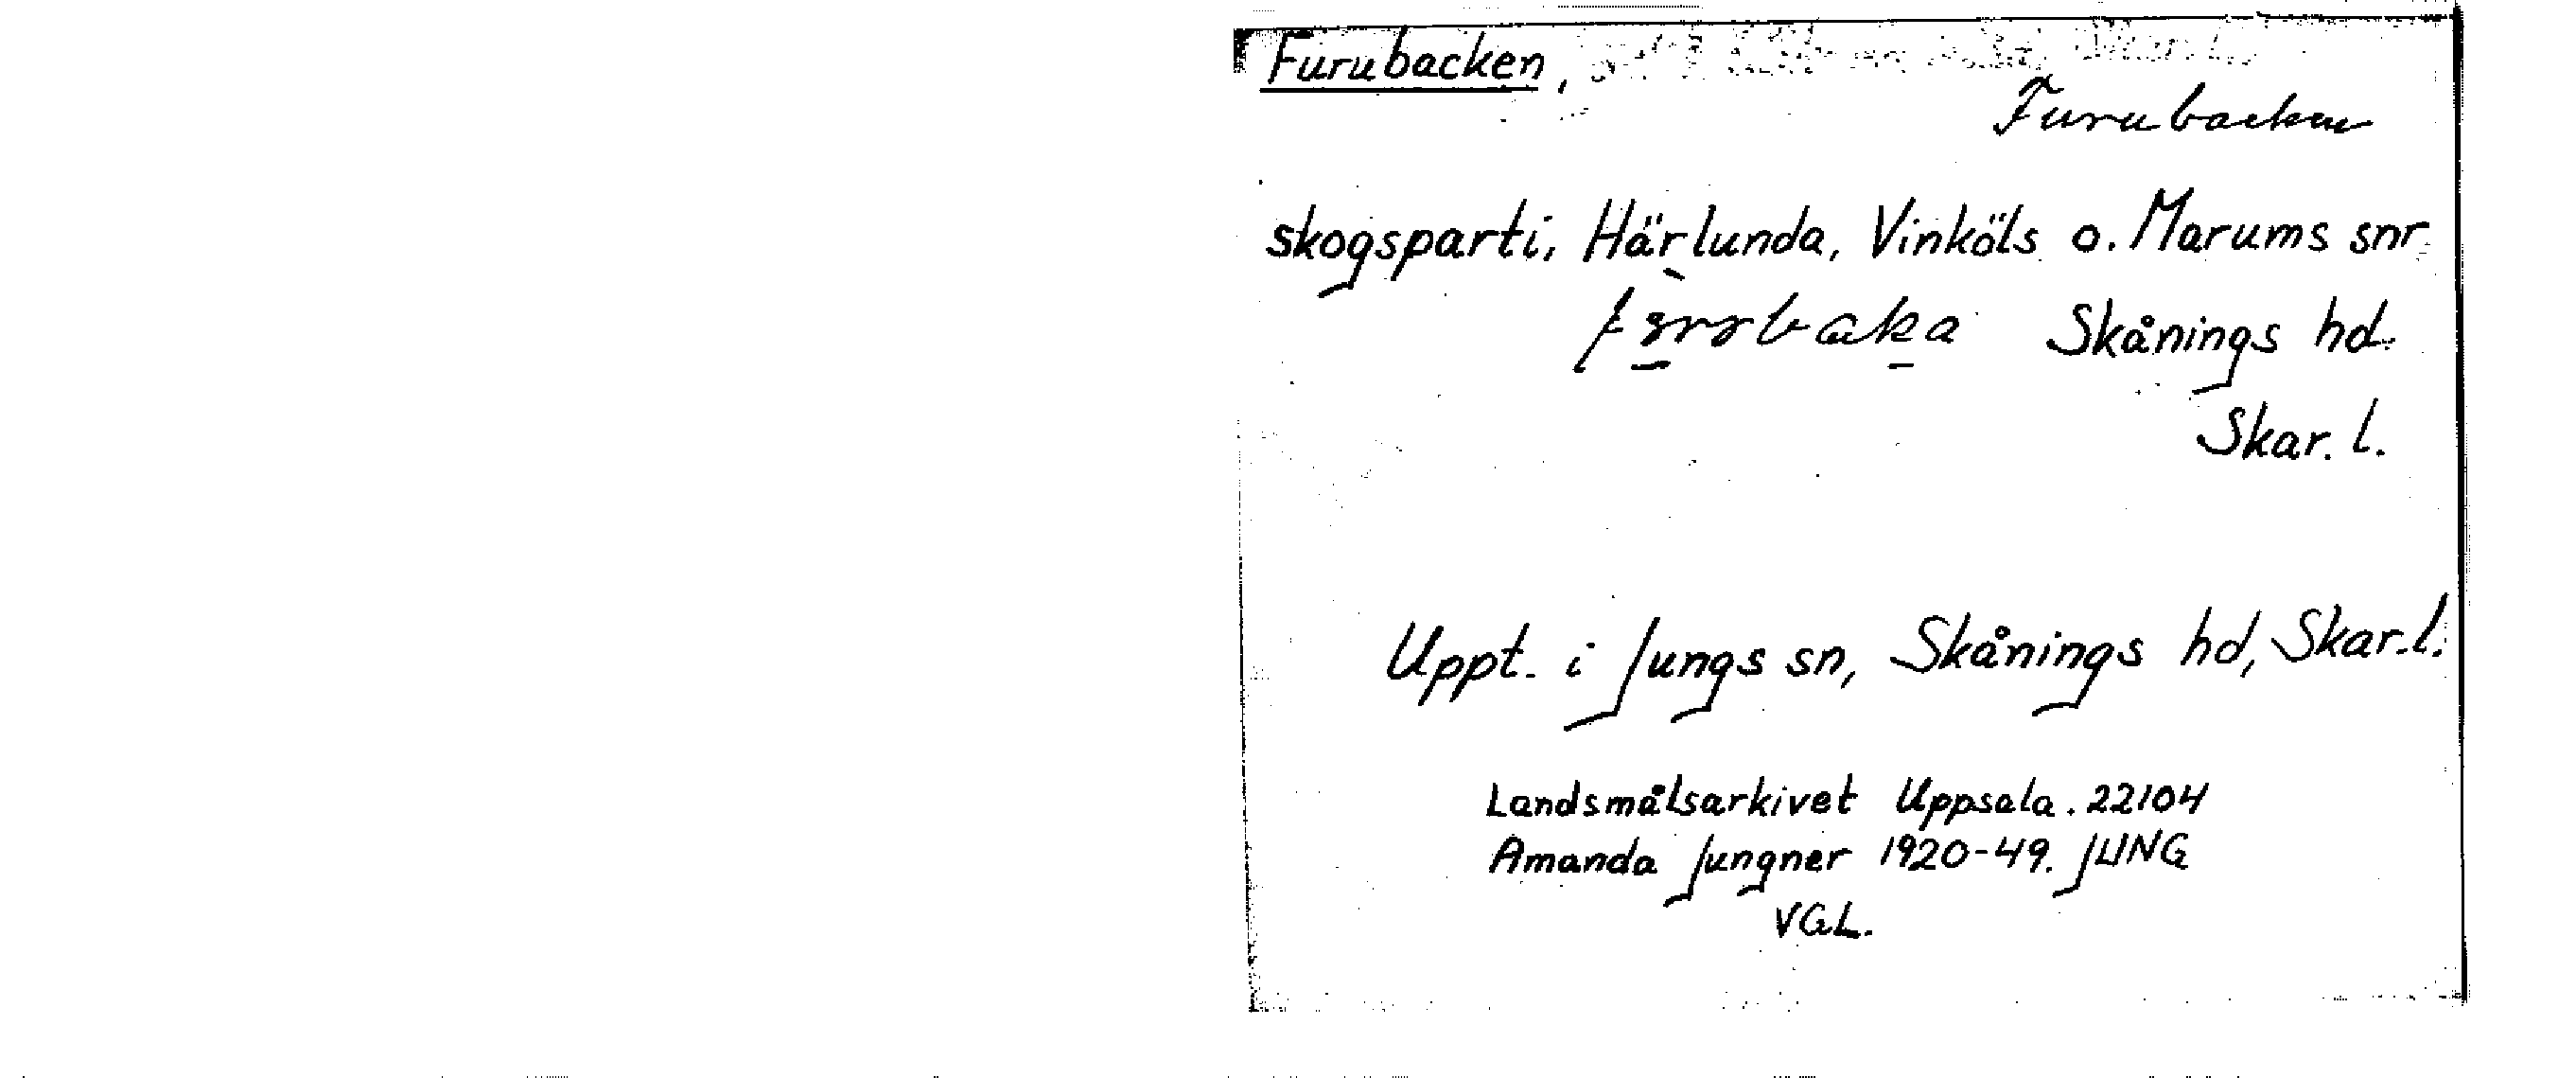 Furubacken,
Furubacken
skogsparti, Härlunda, Vinköls o. Marums snr
Skånings hd
Skar. l.
Uppt. i Jungs sn, Skånings hd, Skar. l.
Landsmålsarkivet Uppsala. 22104
Amanda Jungner 1920-49. JUNG
VGL.